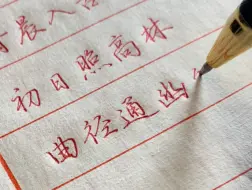 晨入古
初日照高林
曲径通幽